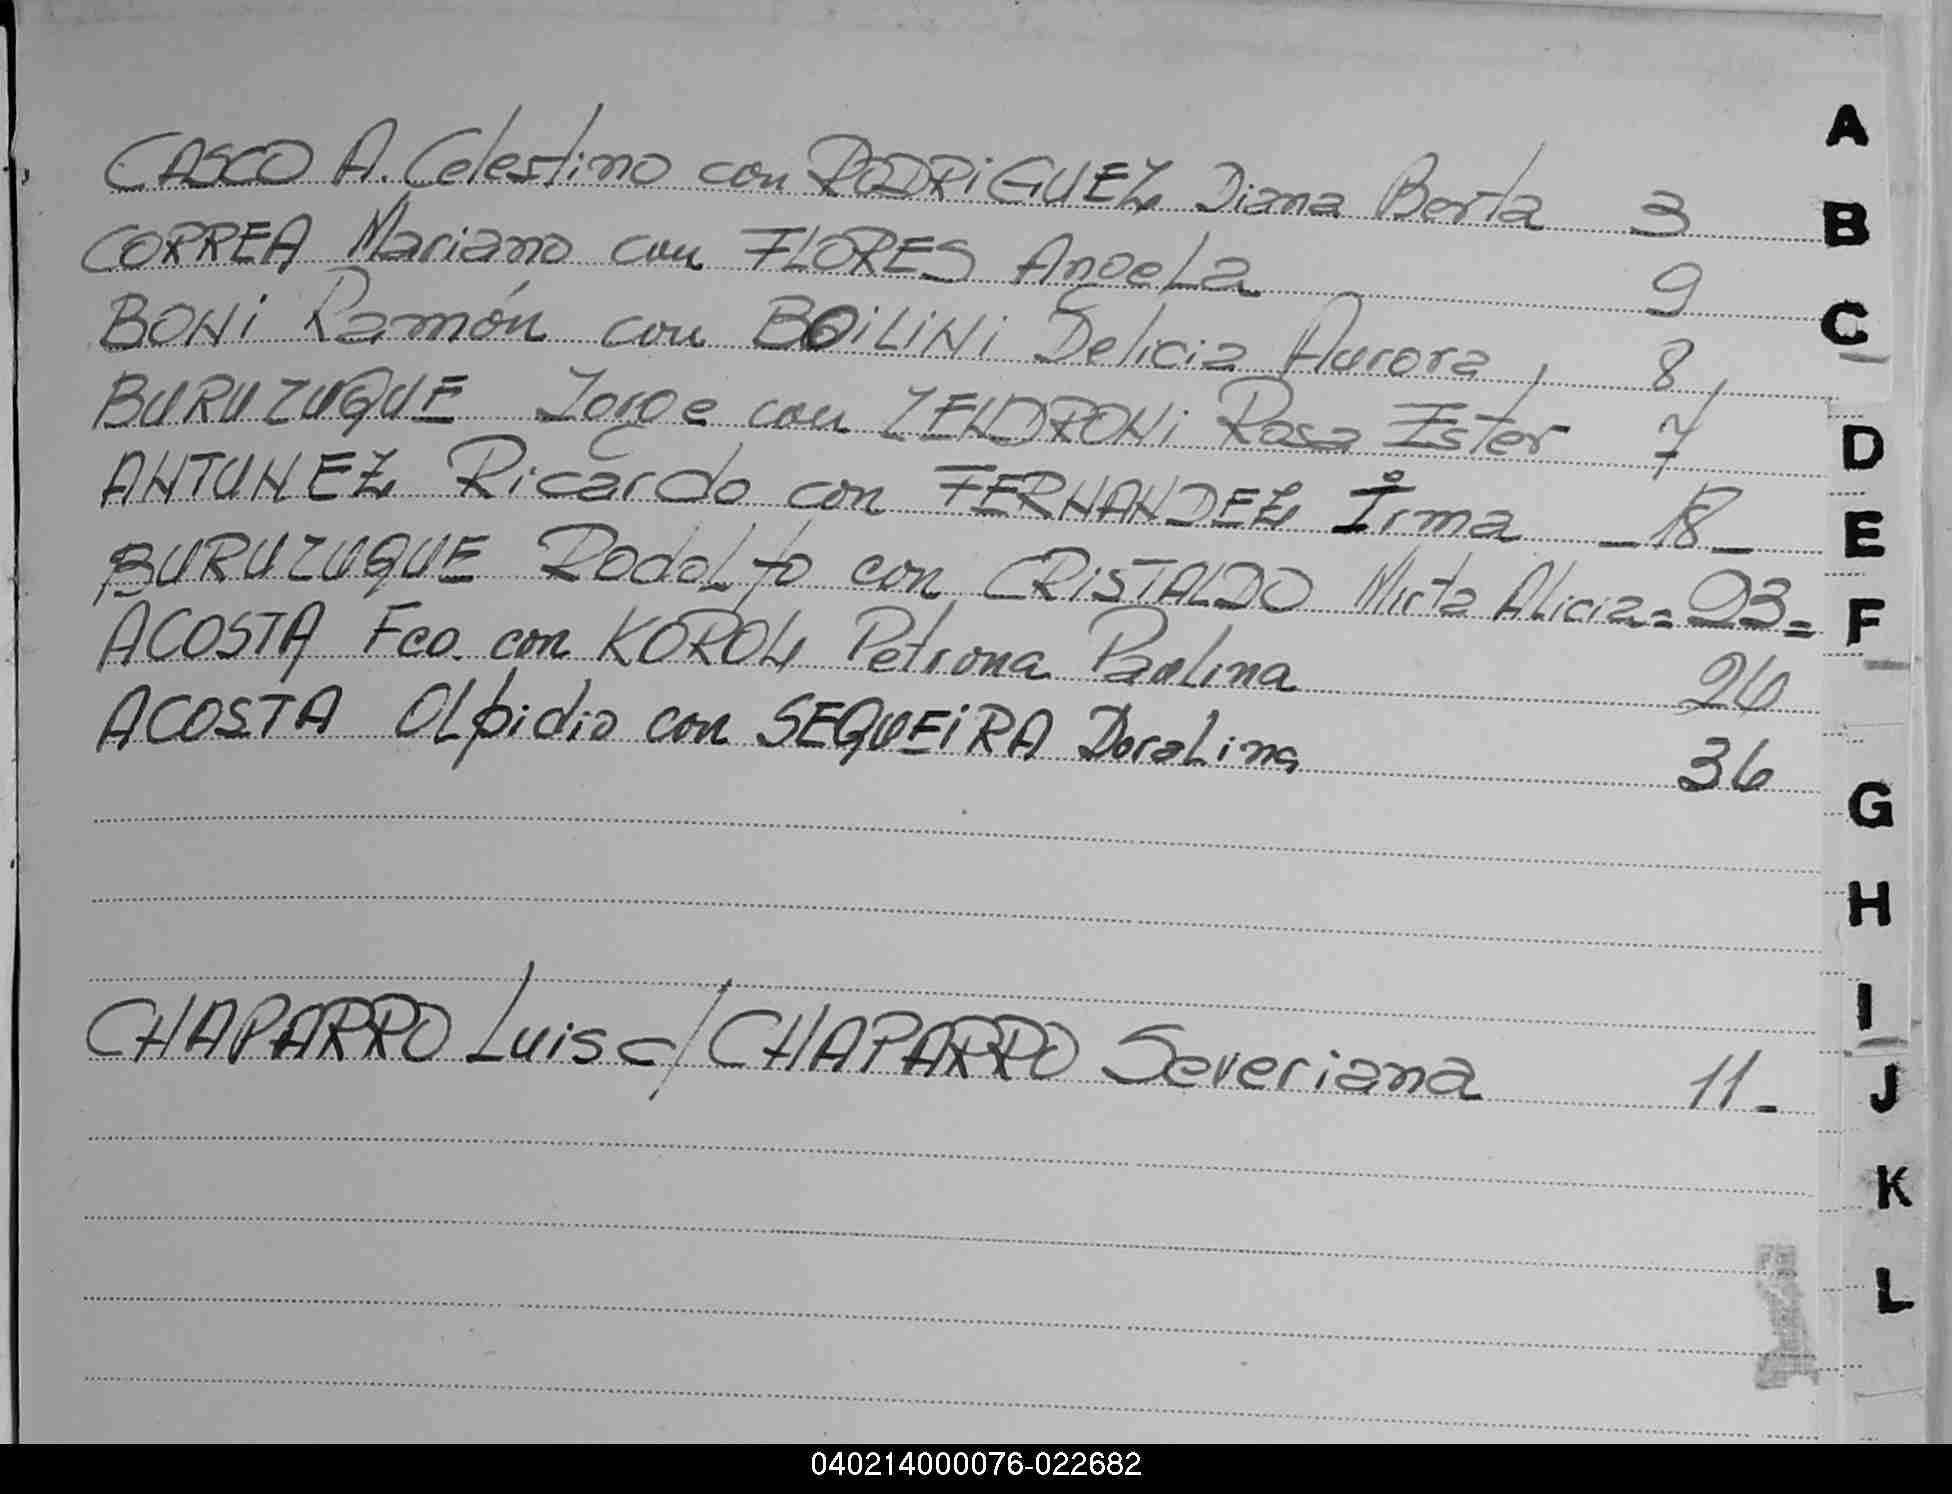 CASCO A. Celestino con RODRiGUEZ Diana Berta 3
CORREA Mariano con FLORES Angela 9
BONi Ramón con BOiLiNi Delicia Aurora, 8,
BURUZUQUE Jorge con ZENDRONi Rosa Ester 7
ANTUNEZ Ricardo con FERNANDEZ Irma _18_
BURUZUQUE Rodolfo con CRiSTALDO Mirta Alicia=23=
ACOSTA Fco. con KOROL Petrona Paulina 26
ACOSTA OLpidio con SEQUEiRA DoraLina 36
CHAPARRO Luis c/ CHAPARRO Severiana 11_
A
B
C
D
E
F
G
H
I
J
K
L
040214000076-022682